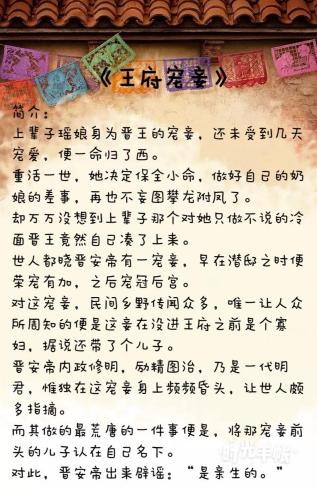 《王府宠妾》
简介：
上辈子瑶娘身为晋王的宠妾，还未受到几天
宠爱，便一命归了西。
重活一世，她决定保全小命，做好自己的奶
娘的差事，再也不妄图攀龙附凤了。
却万万没想到上辈子那个对她只做不说的冷
面晋王竟然自己凑了上来。
世人都晓晋安帝有一宠妾，早在潜邸之时便
荣宠有加，之后宠冠后宫。
对这宠妾，民间乡野传闻众多，唯一让人众
所周知的便是这妾在没进王府之前是个寡
妇，据说还带了个儿子。
晋安帝内政修明，励精图治，乃是一代明
君，惟独在这宠妾身上频频昏头，让世人颇
多指摘。
而其做的最荒唐的一件事便是，将那宠妾前
头的儿子认在自己名下。
对此，晋安帝出来辟谣：“是亲生的。”